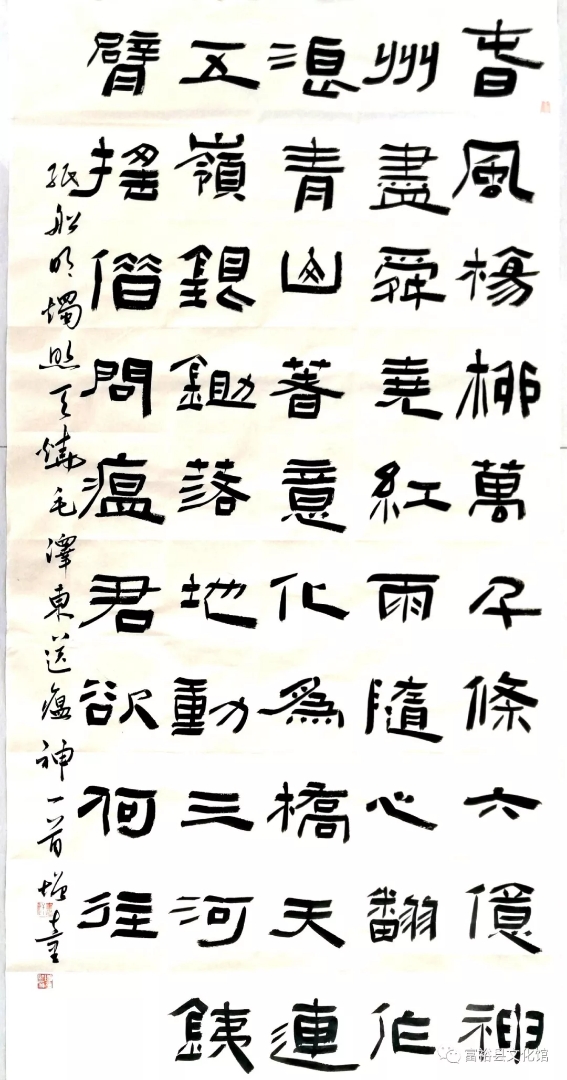 春風楊柳萬千條六億神
州盡舜堯紅雨隨心翻作
浪青山著意化為橋天連
五嶺銀鋤落地動三河銕
臂搖借問瘟君欲何往
紙船明燭照天燒毛澤東送瘟神一首
富裕县文化馆